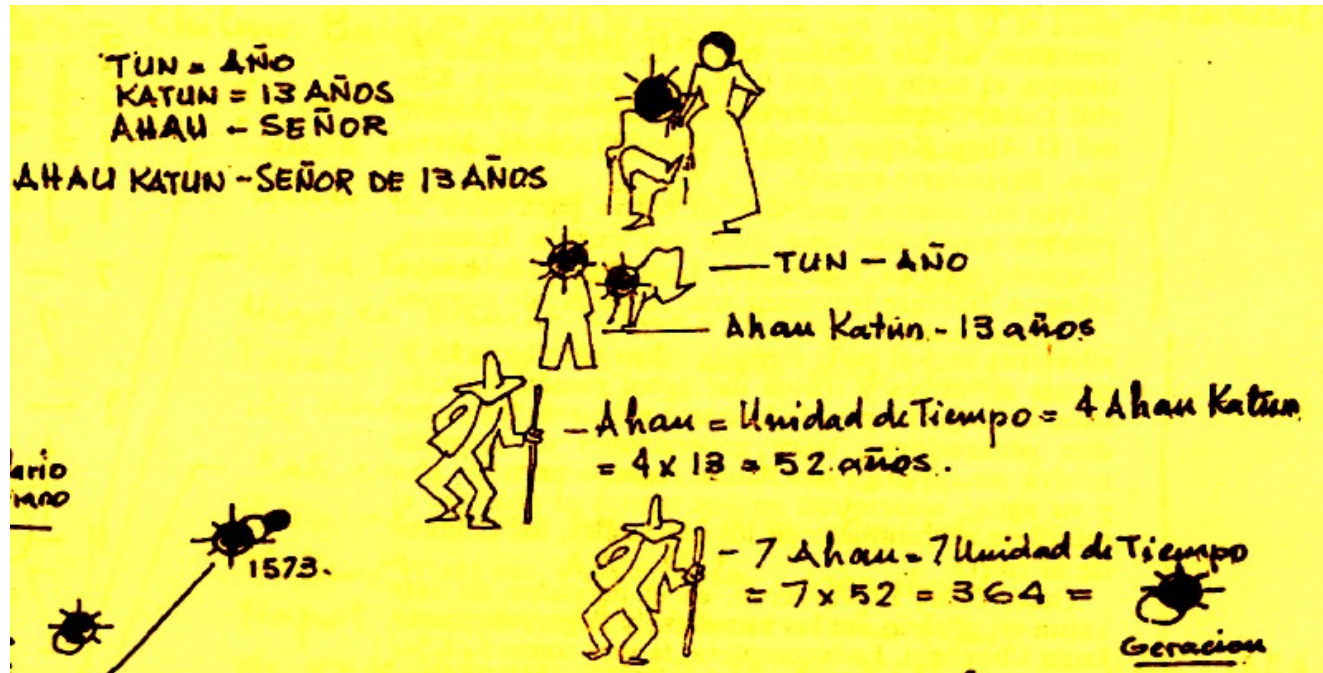 TUN = AÑO
KATUN = 13 AÑOS
AHAU - SEÑOR
AHAU KATUN - SEÑOR DE 13 AÑOS
TUN - AÑO
Ahau Katún - 13 años
- Ahau = Unidad de Tiempo = 4 Ahau Katun
= 4 x 13 = 52 años.
1573.
- 7 Ahau = 7 Unidad de Tiempo
= 7 x 52 = 364 =
Geracion